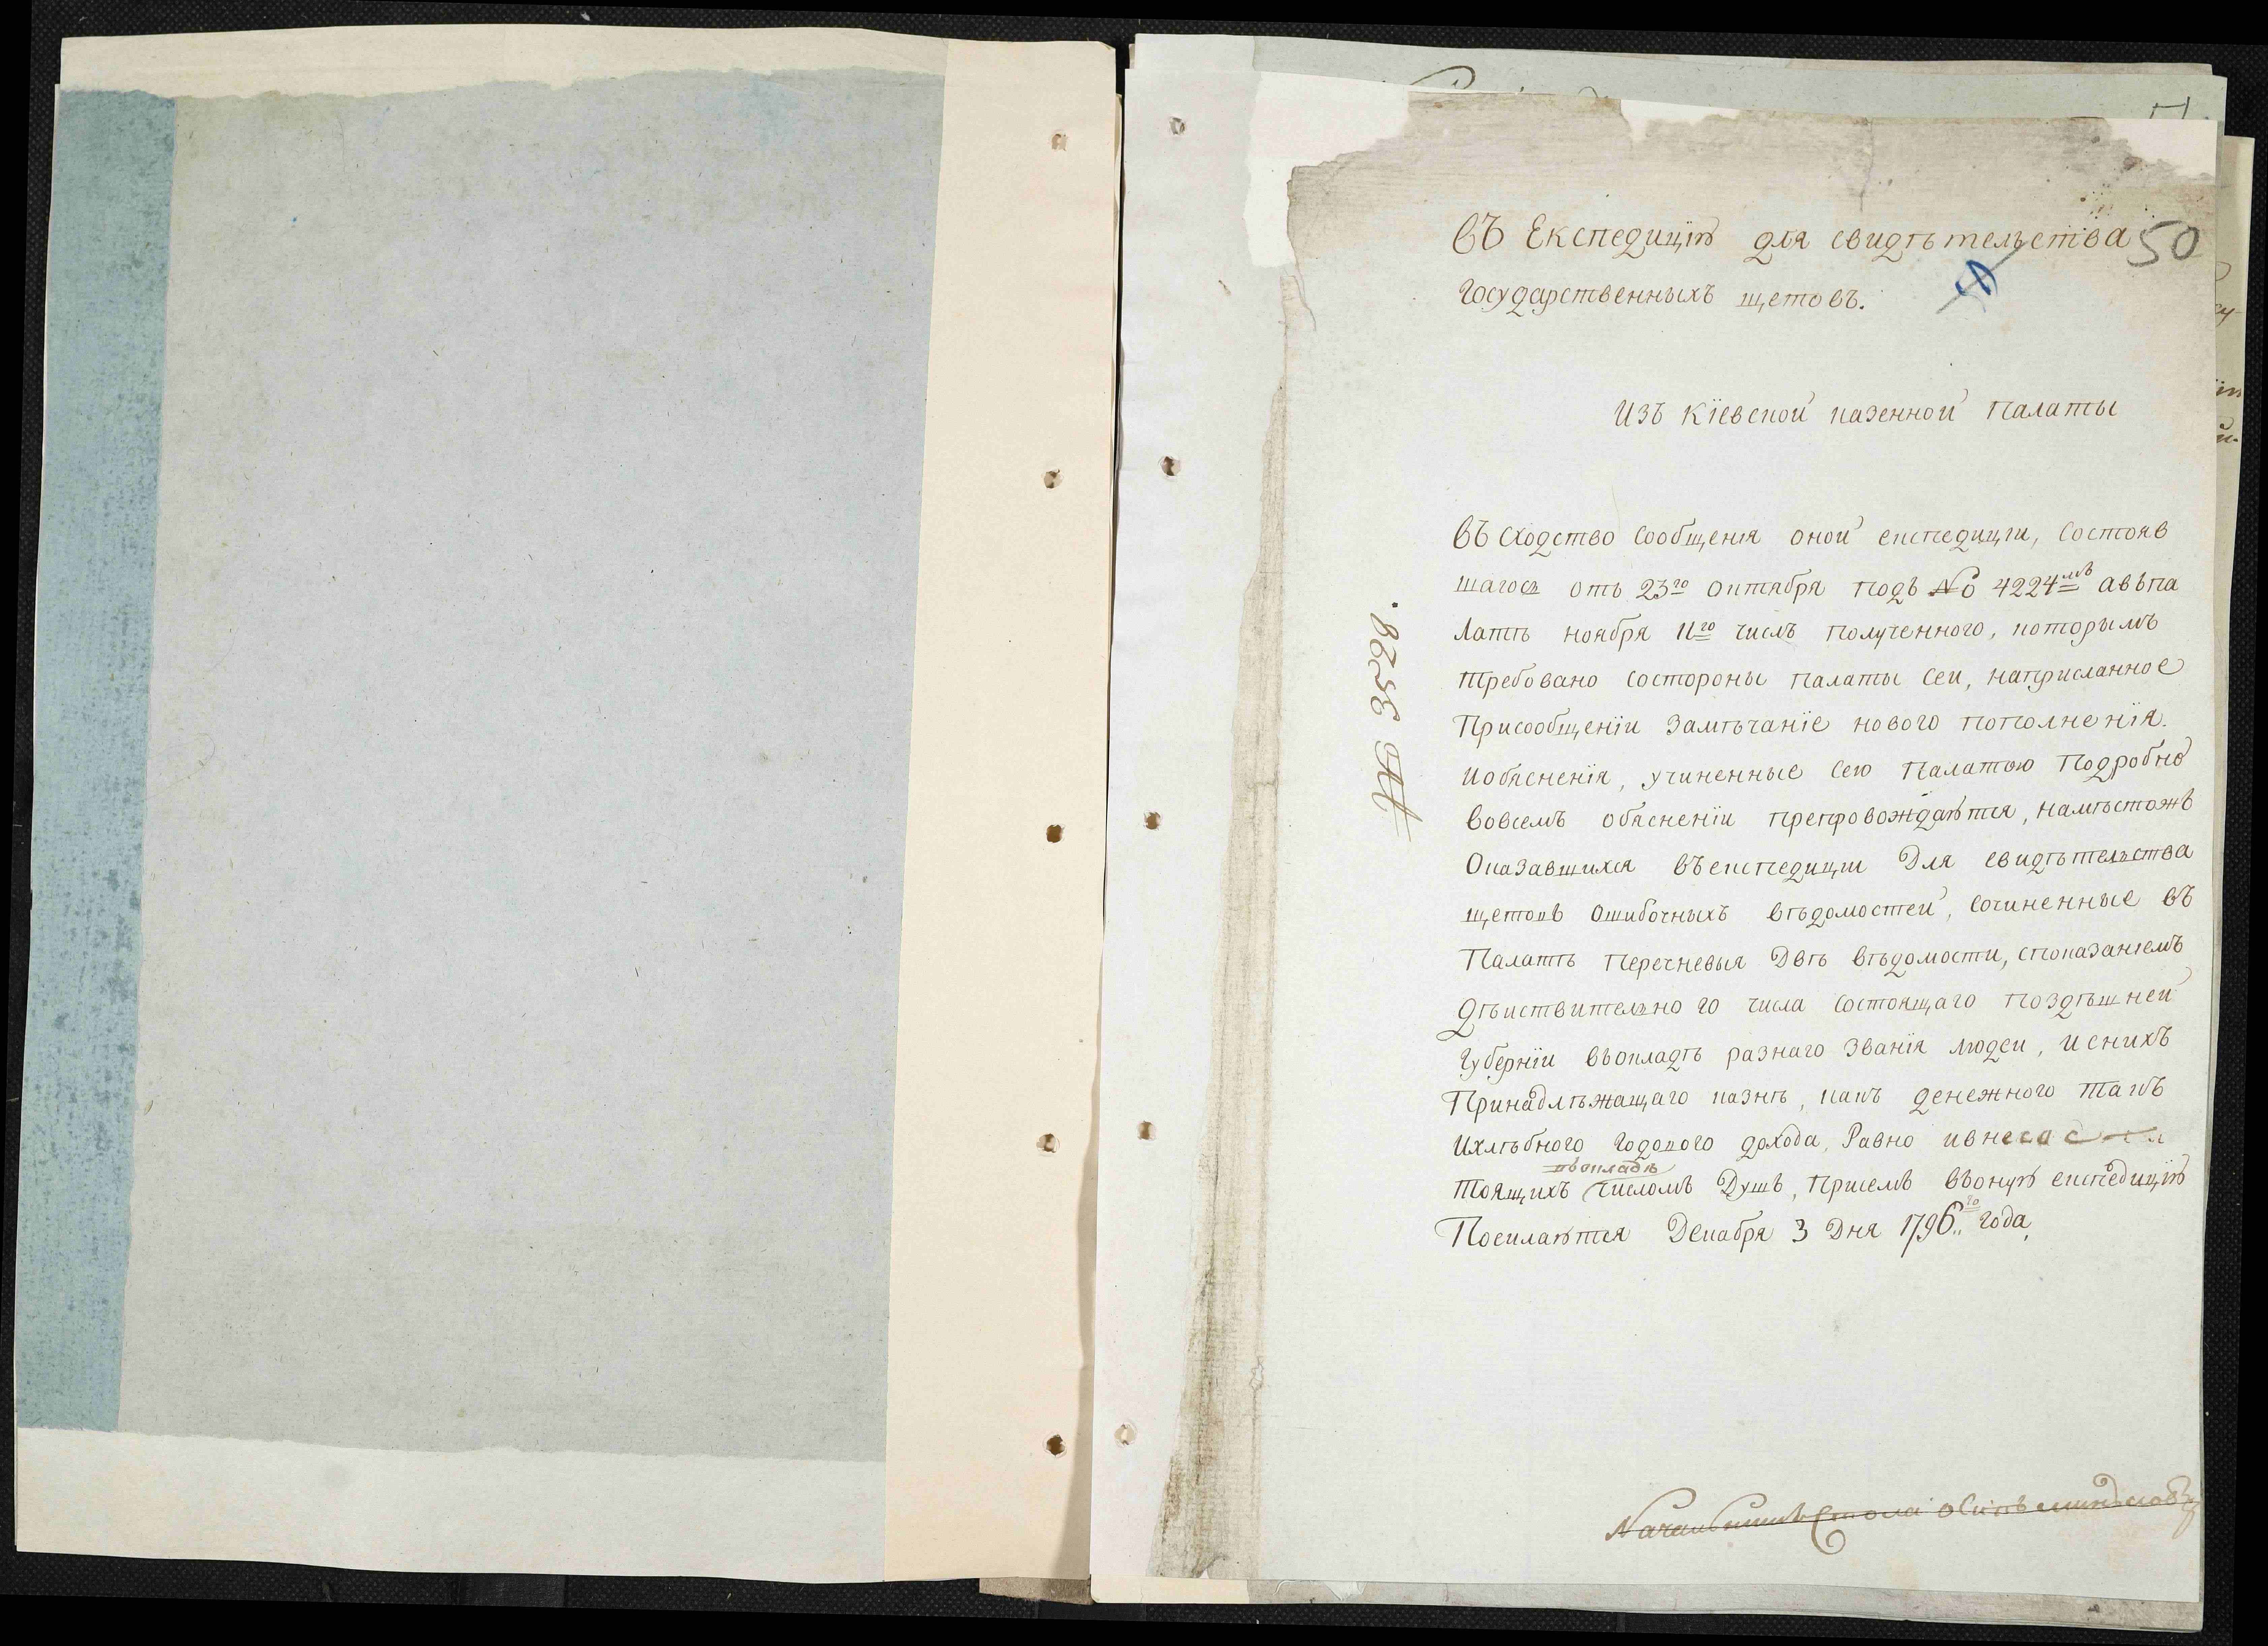 50
въ Експедицію для свидѣтельства
Государственныхъ щетовъ.
Изъ Кїевской казенной Палаты
№ 3528.
въ сходство сообщенія оной експедиціи, состояв
шагось отъ 23го октября подъ № 4224мъ авъпа
латѣ ноября 11го числъ полученного, которымъ
требовано состороны палаты сей, наприсланное
Присообщенїи замѣчанїе нового пополненїя.
иобясненїя, учиненные сею палатою подробно
вовсемъ обясненїи препровождаются, намѣстожъ
Оказавшихся въекспедиціи для свидѣтельства
щетовъ ошибочныхъ вѣдомостей, сочиненные въ
Палатѣ перечневыя двѣ вѣдомости, споказаніемъ
дѣйствительного числа состоящаго поздѣшней
Губернїи вокладѣ разнаго званїя людей, и снихъ
Принадлѣжащаго казнѣ, какъ денежного такъ
ихлѣбного годового дохода, Равно ивнесос
въокладѣ
тоящихъ числомъ душъ, присемъ въоную експедицїю
Посилаются Декабря 3 дня 1796го года,
Начальникъ Стола